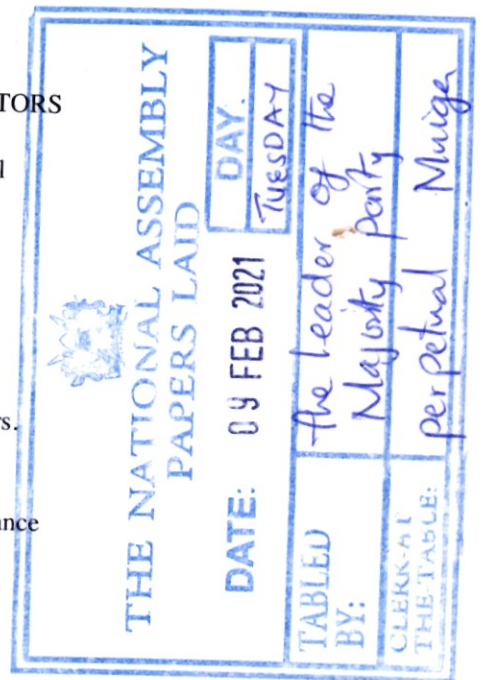 TORS
l
rs.
ance
THE NATIONAL ASSEMBLY
PAPERS LAID
DATE: 09 FEB 2021
DAY.
TUESDAY
TABLED
BY:
the Leader of the
Majority party
CLERK-AT
THE-TABLE:
perpetual Muiga